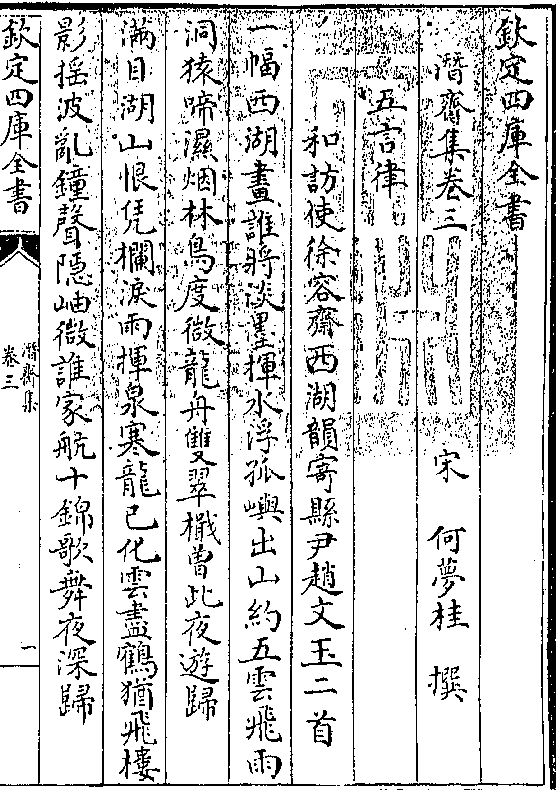 欽定四庫全書
潛齋集卷三
宋 何夢桂 撰
五言律
和訪使徐容齋西湖韻寄縣尹趙文玉二首
一幅西湖畫誰將淡墨揮水浮孤嶼出山約五雲飛雨
洞猿啼濕烟林鳥度微龍舟雙翠檝曽此夜遊歸
滿目湖山恨凭欄淚雨揮泉寒龍已化雲盡鶴猶飛樓
影揺波亂鐘聲隠岫微誰家航十錦歌舞夜深歸
欽定四庫全書
潛齋集
卷三
一